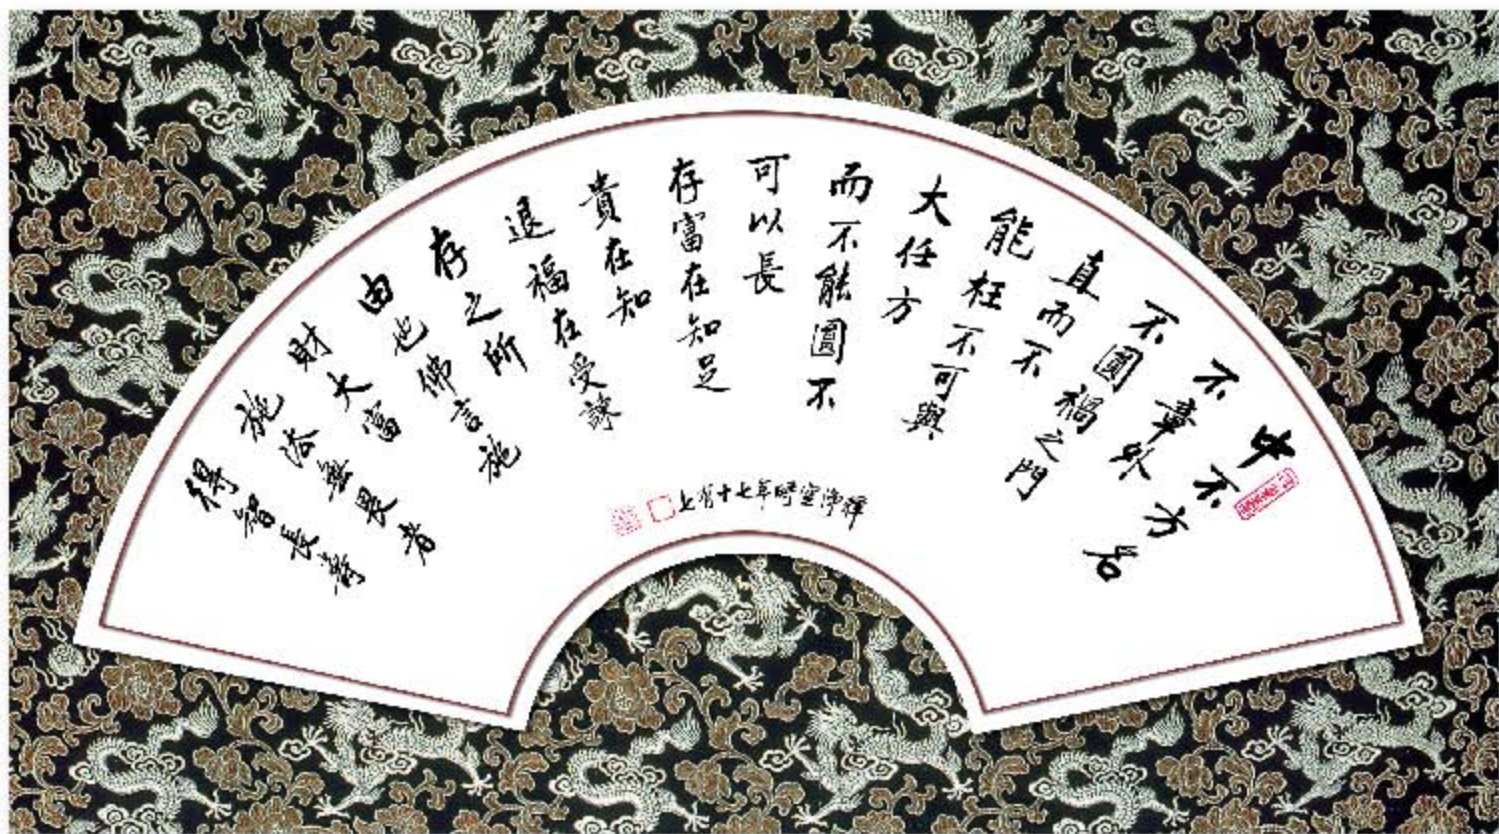 中不方名
不章外
不圓禍之門
直而不
能枉不可與
大任方
而不能圓不
可以長
存富在知足
貴在知
退福在受諫
存之所
由也佛言施
財大富
施法無畏者
得智長壽
時年七十有七